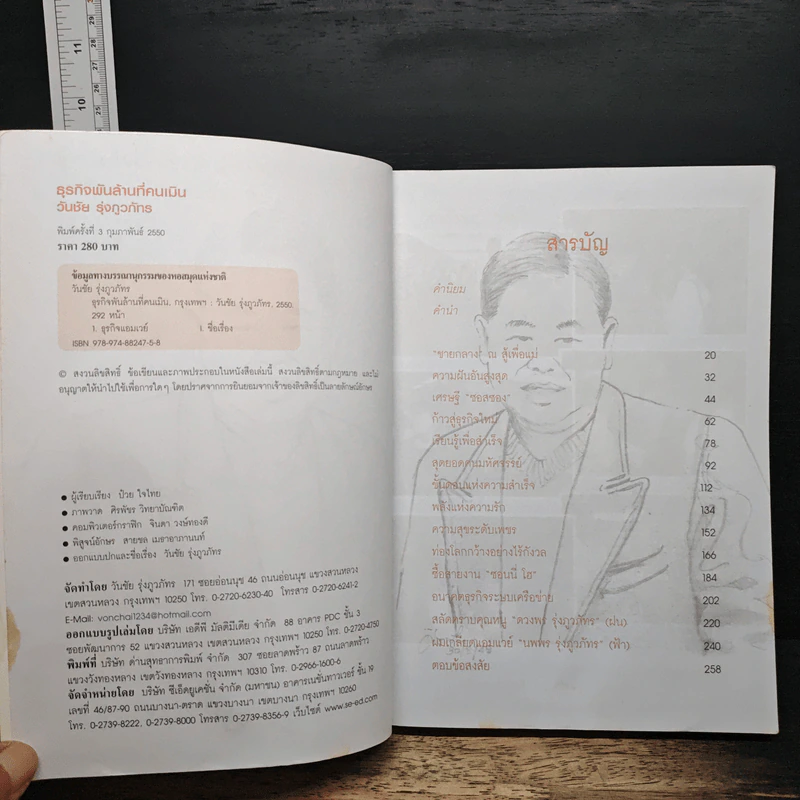 ธุรกิจพันล้านที่คนเมิน
วันชัย รุ่งภูวภัทร
พิมพ์ครั้งที่ 3 กุมภาพันธ์ 2550
ราคา 280 บาท
ข้อมูลทางบรรณานุกรรมของหอสมุดแห่งชาติ
วันชัย รุ่งภูวภัทร
ธุรกิจพันล้านที่คนเมิน, กรุงเทพฯ : วันชัย รุ่งภูวภัทร, 2550.
292 หน้า
1. ธุรกิจแอมเวย์ I. ชื่อเรื่อง
ISBN 978-974-88247-5-8
© สงวนลิขสิทธิ์ ข้อเขียนและภาพประกอบในหนังสือเล่มนี้ สงวนลิขสิทธิ์ตามกฎหมาย และไม่
อนุญาตให้นำไปใช้เพื่อการใดๆ โดยปราศจากการยินยอมจากเจ้าของลิขสิทธิ์เป็นลายลักษณ์อักษร
● ผู้เรียบเรียง ป๋วย ใจไทย
● ภาพวาด ศิรพัชร วิทยาบัณฑิต
● คอมพิวเตอร์กราฟิก จินดา วงษ์ทองดี
● พิสูจน์อักษร สายชล เมธาอาภานนท์
● ออกแบบปกและชื่อเรื่อง วันชัย รุ่งภูวภัทร
จัดทำโดย วันชัย รุ่งภูวภัทร 171 ซอยอ่อนนุช 46 ถนนอ่อนนุช แขวงสวนหลวง
เขตสวนหลวง กรุงเทพฯ 10250 โทร. 0-2720-6230-40 โทรสาร 0-2720-6241-2
E-Mail: vonchai1234@hotmail.com
ออกแบบรูปเล่มโดย บริษัท เอดีพี มัลติมีเดีย จำกัด 88 อาคาร PDC ชั้น 3
ซอยพัฒนาการ 52 แขวงสวนหลวง เขตสวนหลวง กรุงเทพฯ 10250 โทร. 0-2720-4750
พิมพ์ที่ บริษัท ด่านสุทธาการพิมพ์ จำกัด 307 ซอยลาดพร้าว 87 ถนนลาดพร้าว
แขวงวังทองหลาง เขตวังทองหลาง กรุงเทพฯ 10310 โทร. 0-2966-1600-6
จัดจำหน่ายโดย บริษัท ซีเอ็ดยูเคชั่น จำกัด (มหาชน) อาคารเนชั่นทาวเวอร์ ชั้น 19
เลขที่ 46/87-90 ถนนบางนา-ตราด แขวงบางนา เขตบางนา กรุงเทพฯ 10260
โทร. 0-2739-8222, 0-2739-8000 โทรสาร 0-2739-8356-9 เว็บไซต์ www.se-ed.com
สารบัญ
คำนิยม
คำนำ
"ชายกลาง" ณ สู้เพื่อแม่ 20
ความฝันอันสูงสุด 32
เศรษฐี "ซอสซอง" 44
ก้าวสู่ธุรกิจใหม่ 62
เรียนรู้เพื่อสำเร็จ 78
สุดยอดคนมหัศจรรย์ 92
ขั้นตอนแห่งความสำเร็จ 112
พลังแห่งความรัก 134
ความสุขระดับเพชร 152
ท่องโลกกว้างอย่างไร้กังวล 166
ซื้อสายงาน "ซอนนี่ โฮ" 184
อนาคตธุรกิจระบบเครือข่าย 202
สลัดคราบคุณหนู "ดวงพร รุ่งภูวภัทร" (ฝน) 220
ผมเกลียดแอมเวย์ "นพพร รุ่งภูวภัทร" (ฟ้า) 240
ตอบข้อสงสัย 258